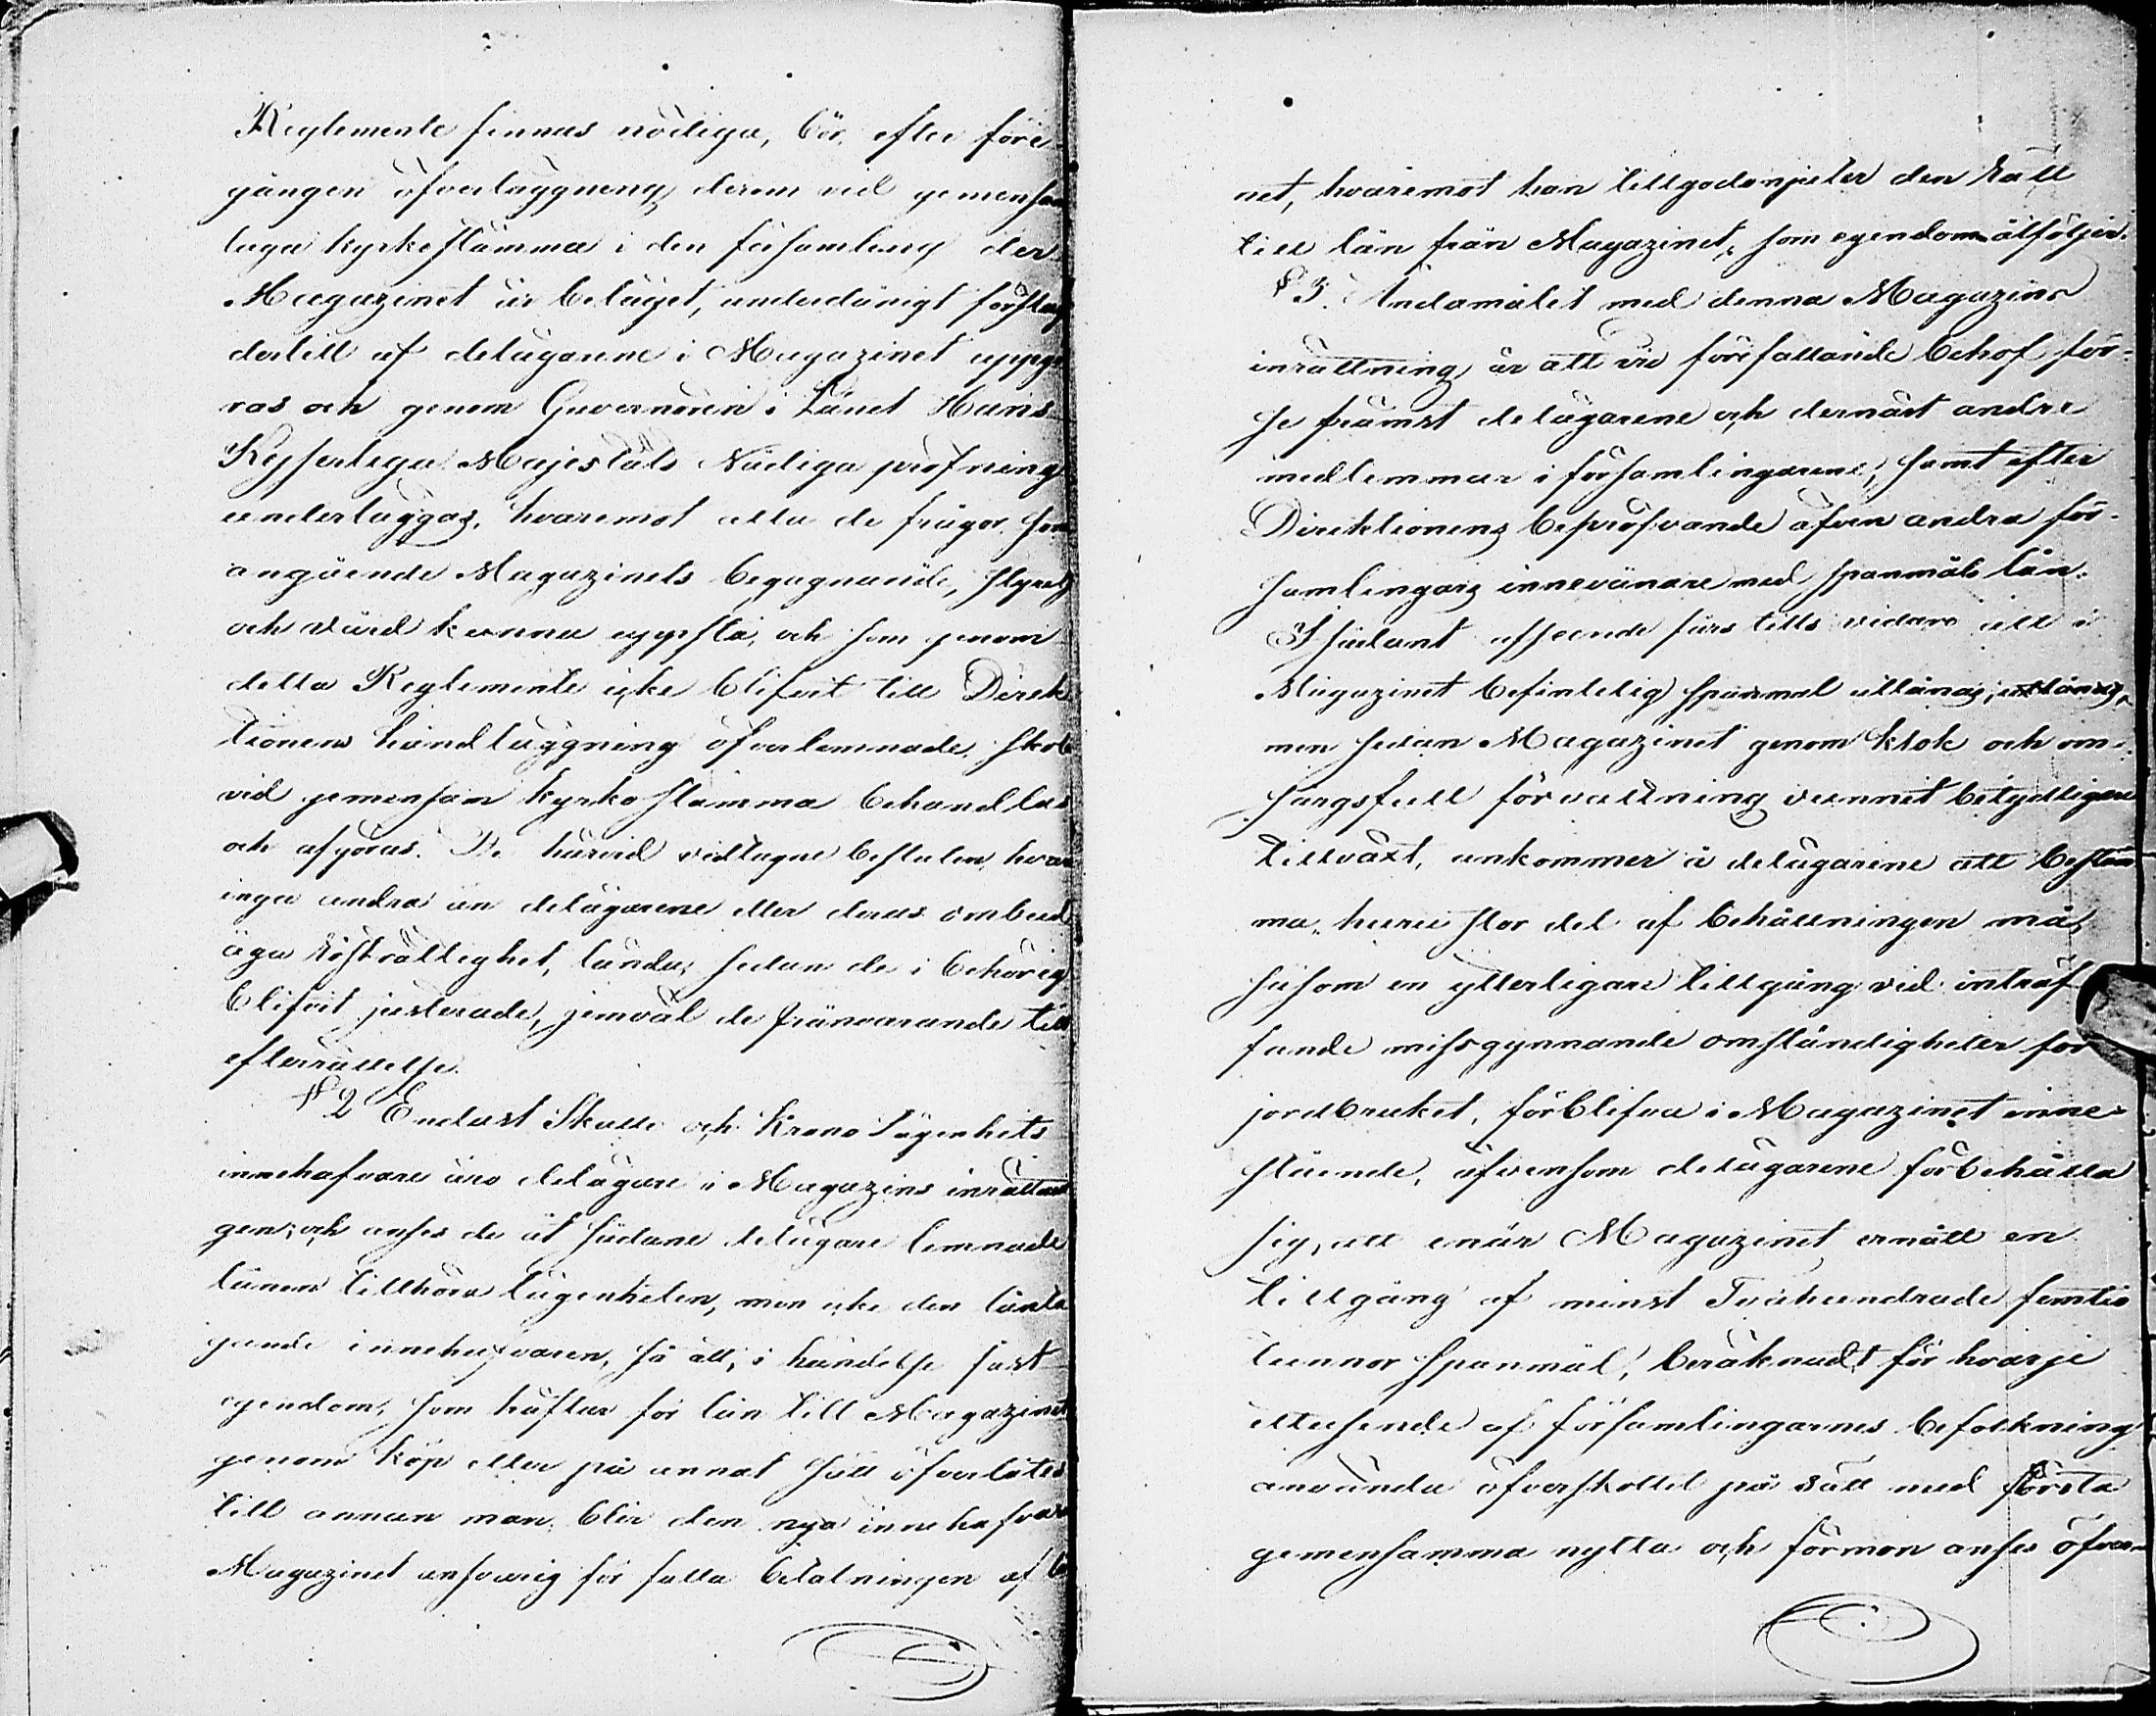 Reglemente finnas nödiga, bör, efter före-
gången öfverläggning derom vid gemensam
laga kyrkostämma i den församling der
Magazinet är beläget, underdånigt förslag
dertill af delägarene i Magazinet uppgö
ras och genom Guvernören i Länet Hans
Kejserliga Majestäts Nådiga pröfning
underläggas, hvaremot alla de frågor som
angående Magazinets begagnande, styrelse
och vård kunna uppstå, och som genom
detta Reglemente icke blifvit till Direk
tionens handläggning öfverlemnade, skola
vid gemensam kyrkostämma behandlas
och afgöras. De härvid vidtagne besluten, hvar
inga andra än delägarene eller deras ombud
äga rösträttighet, lända, sedan de i behörig
blifvit justerade, jemväl de frånvarande till
efterrättelse.
§ 2 Endast Skatte och Krono Lägenhets
innehafvare äro delägare i Magazins inrättnin
gen; och anses de åt sådane delägare lemnade
lånen tillhöra lägenheten, men icke den lånta
gande innehafvaren, så att, i händelse fast
egendom, som häftar för lån till Magazinet
genom köp eller på annat sätt öfverlåtes
till annan man, blir den nya innehafvare
Magazinet ansvarig för fulla betalningen af
net, hvaremot han tillgodonjuter den rätt
till lån från Magazinet, som egendom åtföljer.
§ 3. Ändamålet med denna Magazins
inrättning är att vid förefallande behof för-
se främst delägarene och dernäst andre
medlemmar i församlingarene, samt efter
Direktionens bepröfvande äfven andra för-
samlingars innevånare med spanmåls lån.
I sådant afseende får tills vidare all i
Magazinet befintelig spanmål utlånas; utlånas,
men sedan Magazinet genom klok och om-
sorgsfull förvaltning vunnit betydligare
tillväxt, ankommer å delägarene att bestäm
ma, huru stor del af behållningen må,
såsom en ytterligare tillgång vid inträf
fande missgynnande omständigheter för
jordbruket, förblifva i Magazinet inne-
stående, äfvensom delägarene förbehålla
sig, att enär Magazinet ernått en
tillgång af minst Tvåhundrade femtio
tunnor spanmål, beräknadt för hvarje
ettusende af församlingarnes befolkning
använda öfverskottet på sätt med största
gemensamma nytta och förmon anses öfver-